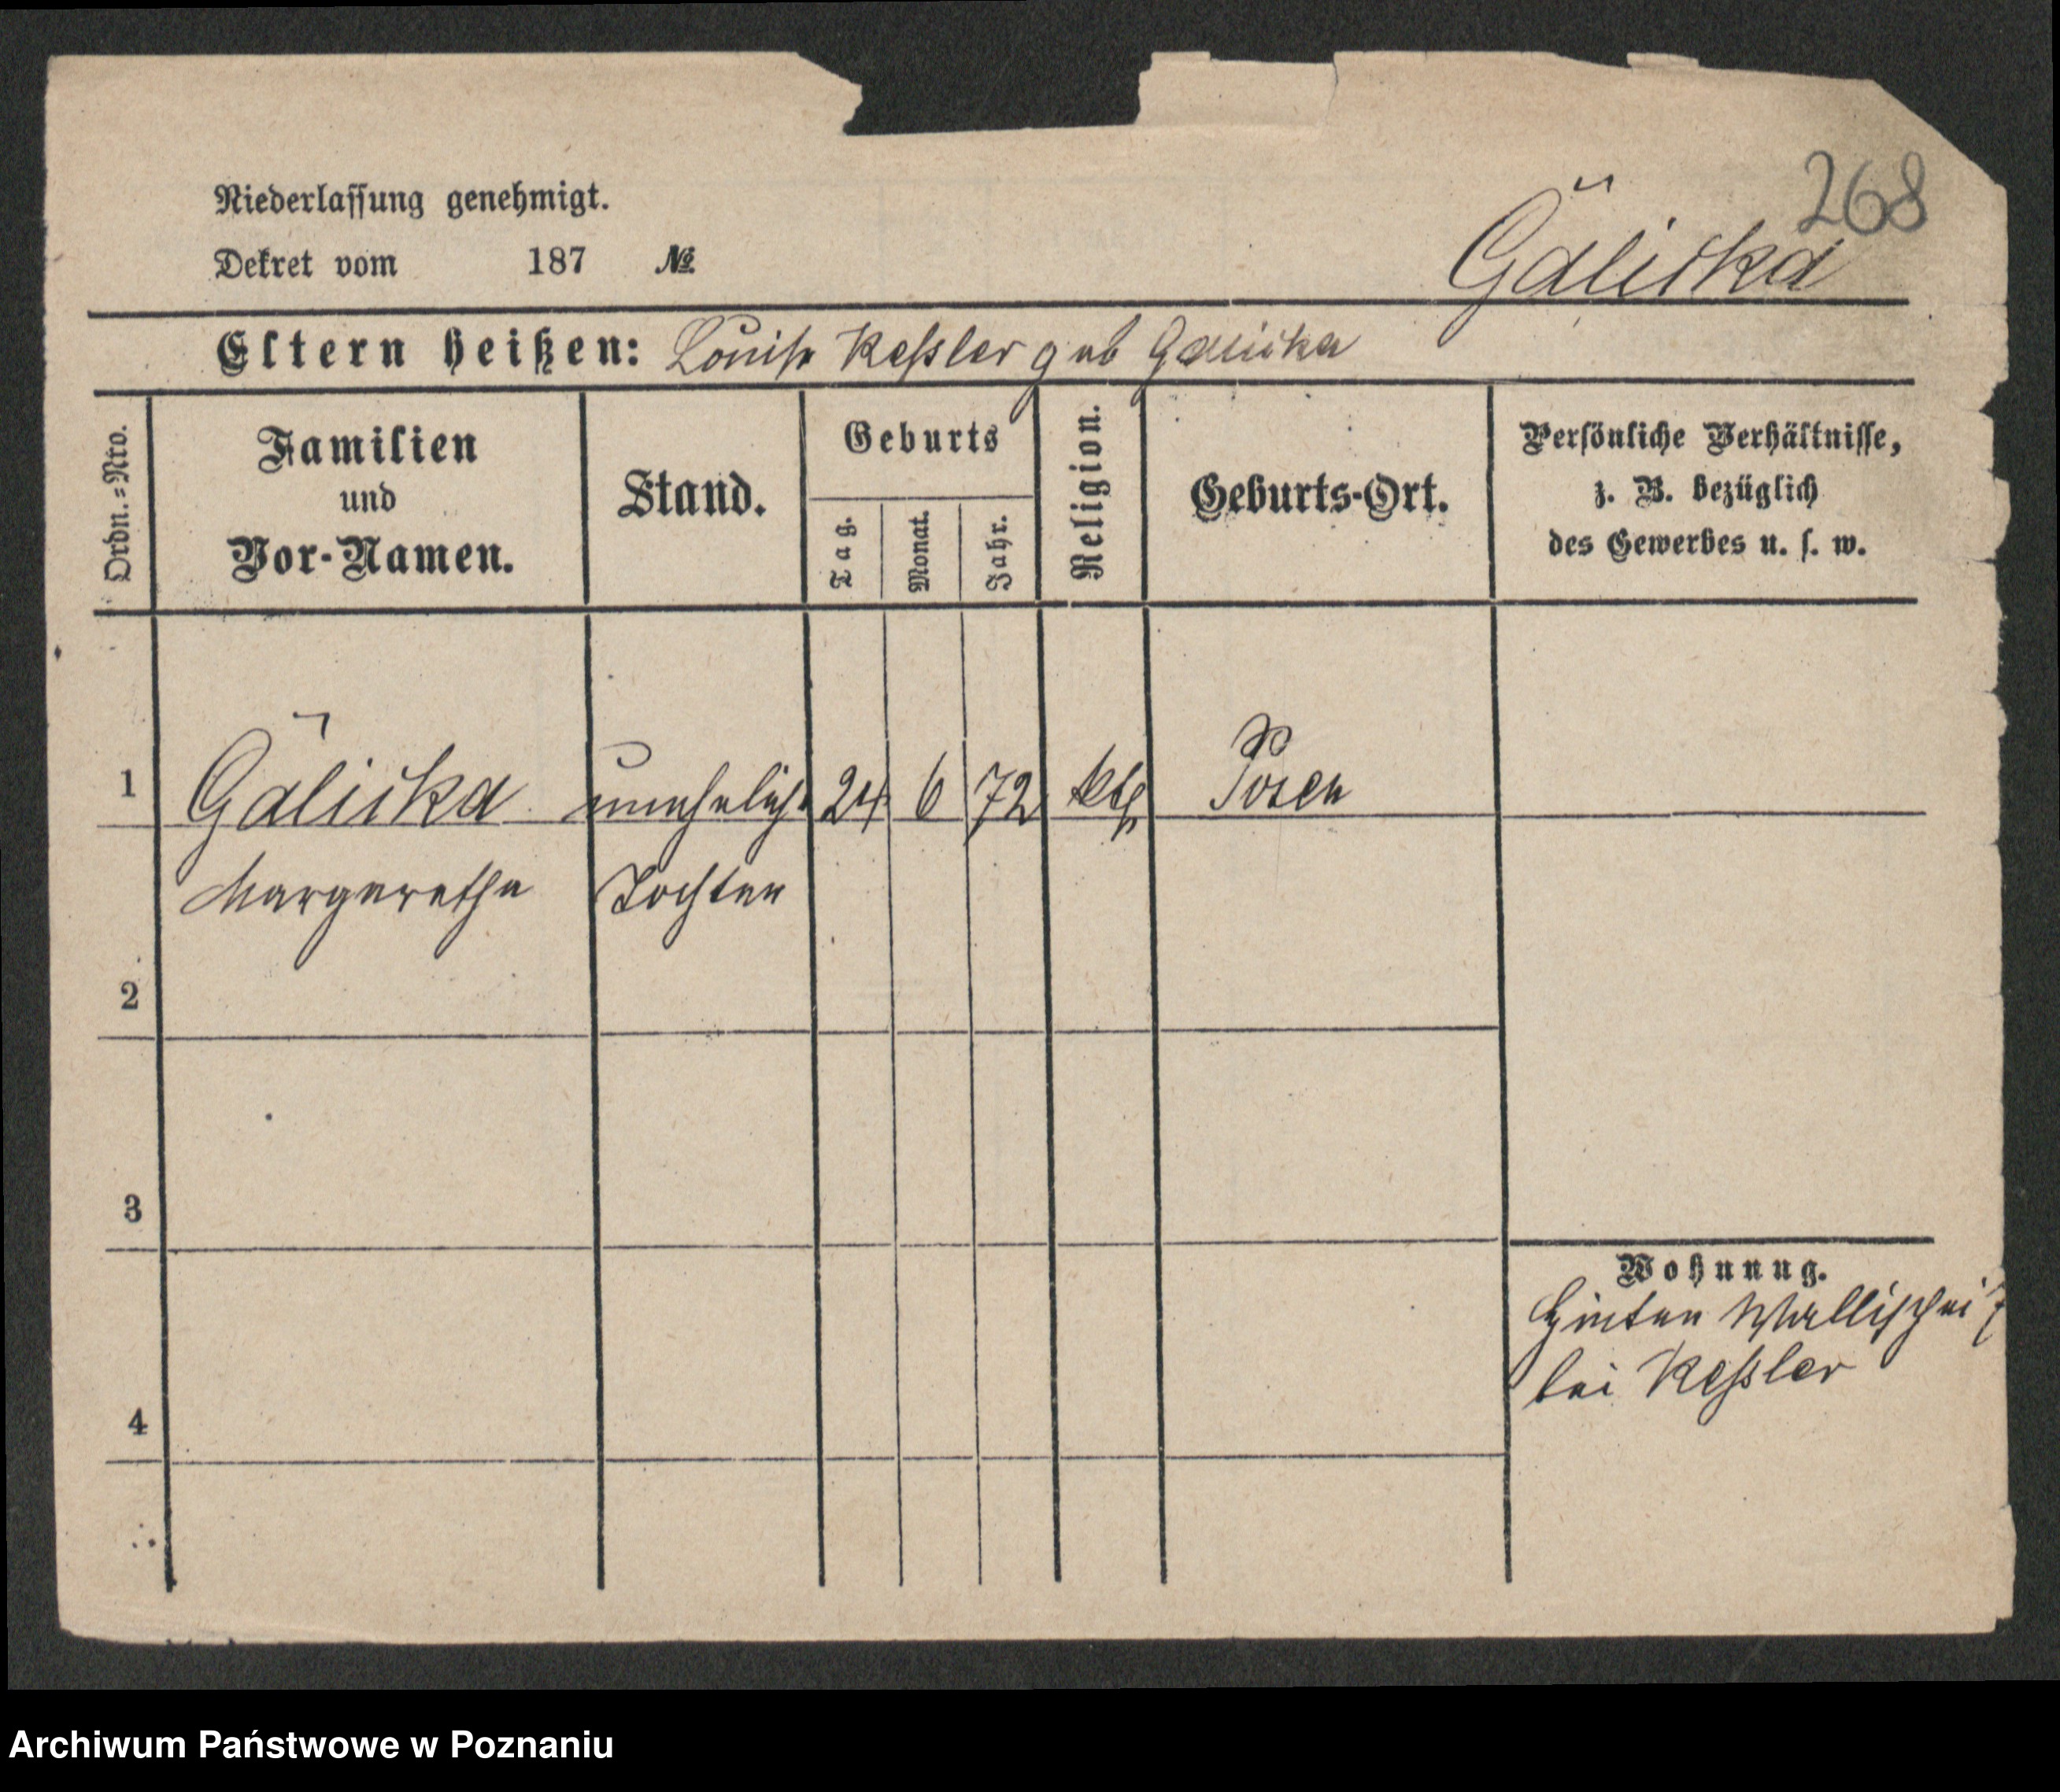 268
Niederlassung genehmigt.
Dekret vom 187 №
Gäliska
Eltern heißen: Louise Keßler geb Galiska
Ordn.=Nro.
Familien
und
Vor-Namen.
Stand.
Geburts
Tag.
Monat.
Jahr.
Religion.
Geburts-Ort.
Persönliche Verhältnisse,
z. B. bezüglich
des Gewerbes u. s. w.
1 Gäliska unehelich 24 6 72 kth Posen
Margarethe Tochter
2
3
4
Wohnung.
Hinter Wallischei 7
bei Keßler
Archiwum Państwowe w Poznaniu